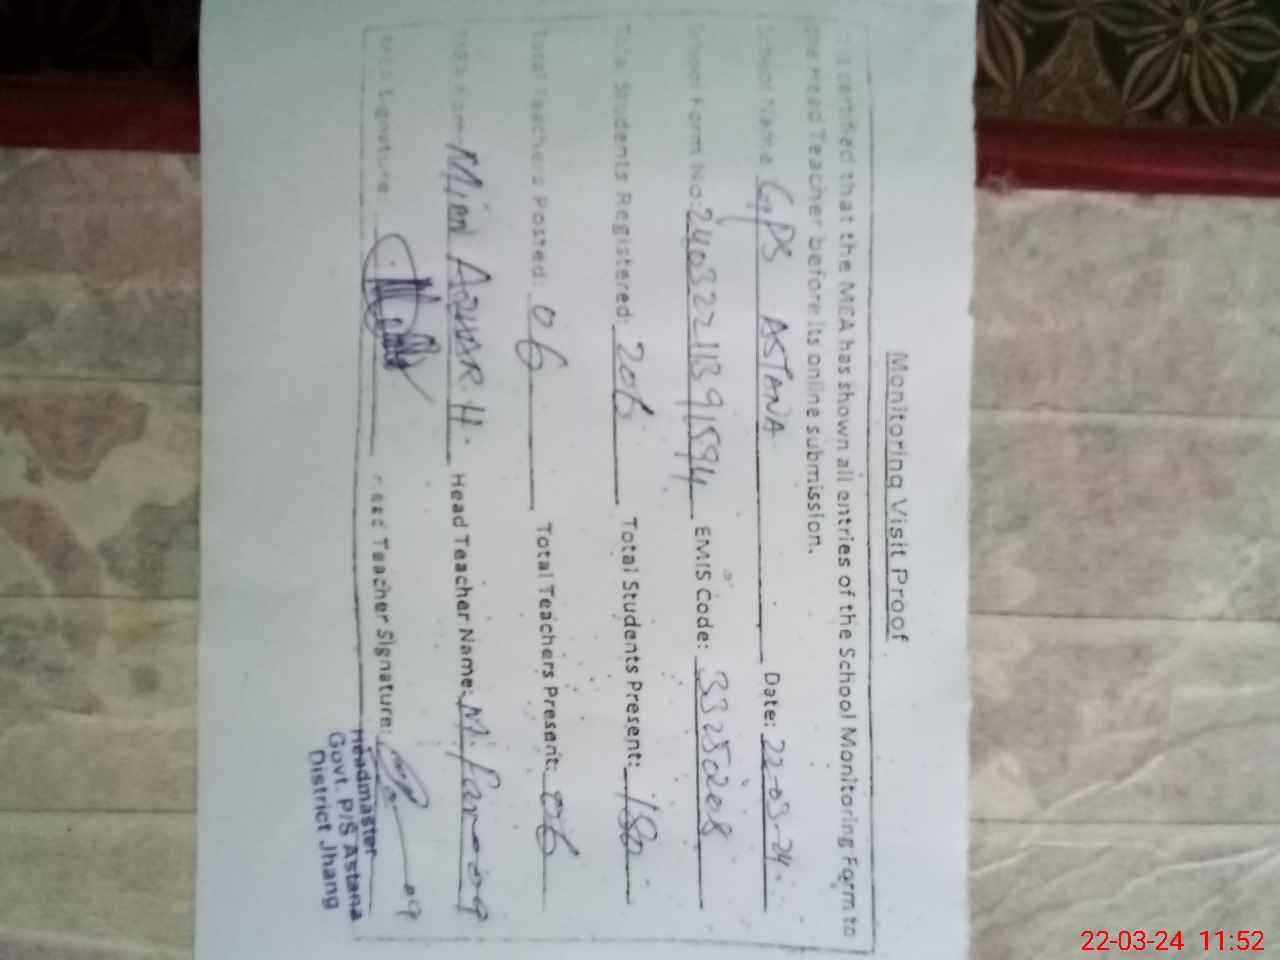 Monitoring Visit Proof
is certified that the MEA has shown all entries of the School Monitoring Form to
the Head Teacher before its online submission.
School Name GPS ASTANA Date: 22-03-24
School Form No: 2403221139 1594 EMIS Code: 33250208
Total Students Registered: 206 Total Students Present: 180
Total Teachers Posted: 06 Total Teachers Present: 06
Name Mian AZHAR H. Head Teacher Name: M.
MEA Signature: Head Teacher Signature:
Headmaster
Govt. P/S Astana
District Jhang
22-03-24 11:52